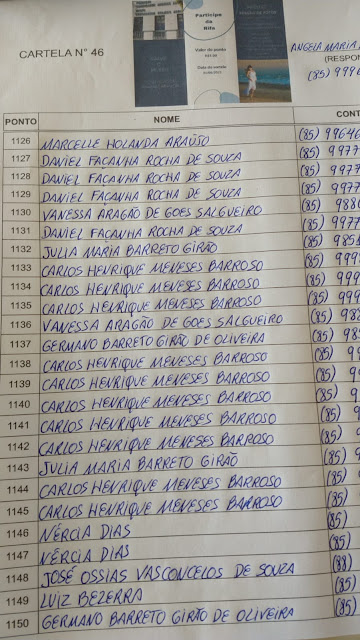 Participe da Rifa
CARTELA N° 46
ANGELA MARIA
(RESPON
(85) 999
PONTO NOME CONT
1126 MARCELLE HOLANDA ARAÚJO (85) 99646
1127 DANIEL FAÇANHA ROCHA DE SOUZA (85) 9977
1128 DANIEL FAÇANHA ROCHA DE SOUZA (85) 9977
1129 DANIEL FAÇANHA ROCHA DE SOUZA (85) 9977
1130 VANESSA ARAGÃO DE GOES SALGUEIRO (85) 988
1131 DANIEL FAÇANHA ROCHA DE SOUZA (85) 9977
1132 JULIA MARIA BARRETO GIRÃO (85) 985
1133 CARLOS HENRIQUE MENESES BARROSO (85) 999
1134 CARLOS HENRIQUE MENESES BARROSO (85) 999
1135 CARLOS HENRIQUE MENESES BARROSO (85) 999
1136 VANESSA ARAGÃO DE GOES SALGUEIRO (85) 98
1137 GERMANO BARRETO GIRÃO DE OLIVEIRA (85) 98
1138 CARLOS HENRIQUE MENESES BARROSO (85) 9
1139 CARLOS HENRIQUE MENESES BARROSO (85) 9
1140 CARLOS HENRIQUE MENESES BARROSO (85) 9
1141 CARLOS HENRIQUE MENESES BARROSO (85) 9
1142 CARLOS HENRIQUE MENESES BARROSO (85)
1143 JULIA MARIA BARRETO GIRÃO (85) 9
1144 CARLOS HENRIQUE MENESES BARROSO (85)
1145 CARLOS HENRIQUE MENESES BARROSO (85)
1146 NÉRCIA DIAS (85)
1147 NÉRCIA DIAS (85)
1148 JOSÉ OSSIAS VASCONCELOS DE SOUZA (88)
1149 LUIZ BEZERRA (85)
1150 GERMANO BARRETO GIRÃO DE OLIVEIRA (85)